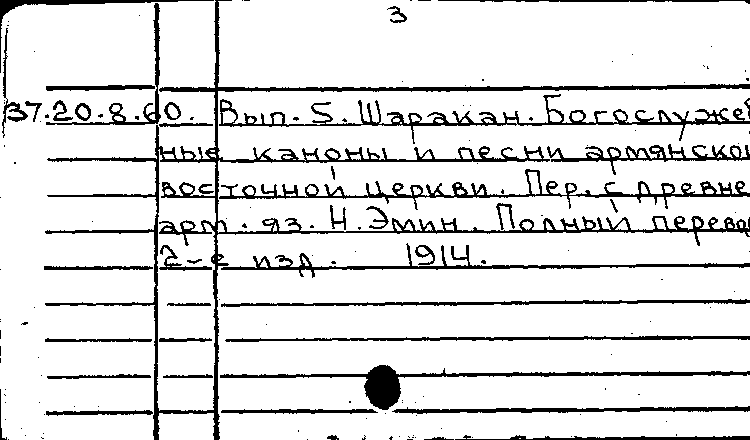 3
37.20.8.60. Вып. 5. Шаракан. Богослуже
ные каноны и песни армянской
восточной церкви. Пер. с древне
арм. яз. Н. Эмин. Полный перевод
2-е изд. 1914.